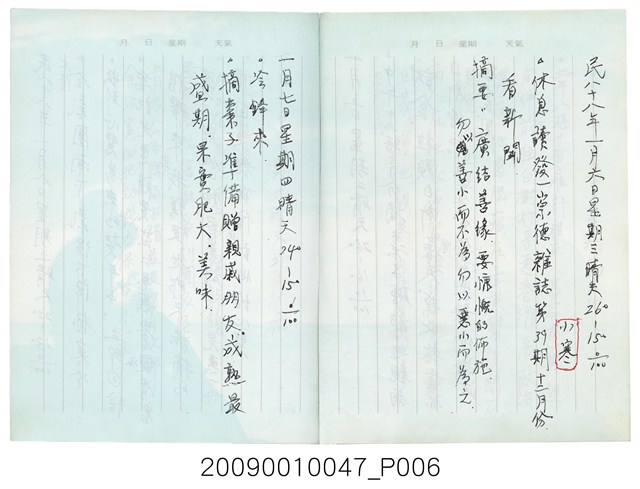 月 日 星期 天氣
民八十八年一月六日星期三晴天 26°-15° 0/100
小寒
。休息.讀發一崇德雜誌第39期十二月份.
看新聞
摘要:廣結善緣.要慷慨的佈施.
勿以善小而不為勿以惡小而為之.
月 日 星期 天氣
一月七日星期四晴天 24°-15° 0/100
。冷鋒來.
。摘棗子準備贈親戚朋友.成熟最
盛期.果實肥大.美味.
20090010047_P006